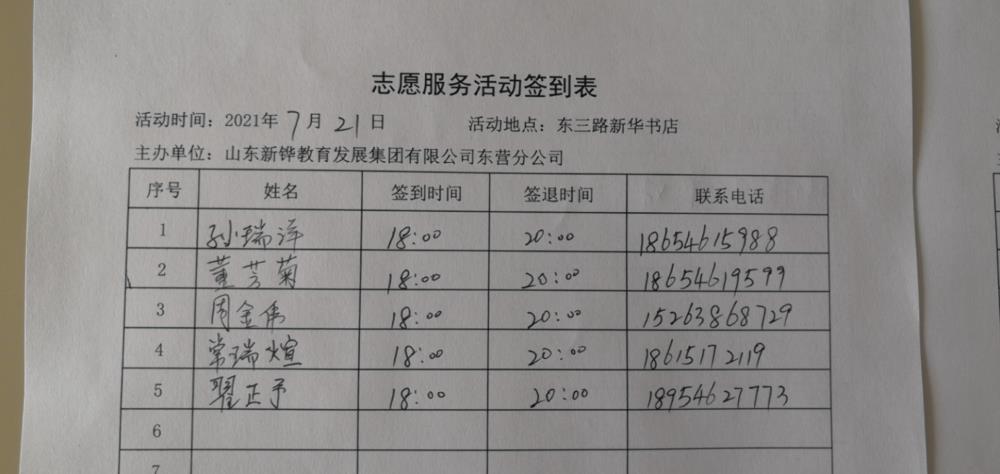 志愿服务活动签到表
活动时间：2021年 7 月 21 日 活动地点：东三路新华书店
主办单位：山东新铧教育发展集团有限公司东营分公司
序号 姓名 签到时间 签退时间 联系电话
1 孙瑞洋 18:00 20:00 18654615988
2 董芳菊 18:00 20:00 18654619599
3 周金伟 18:00 20:00 15263868729
4 常瑞煊 18:00 20:00 18615172119
5 翟正予 18:00 20:00 18954627773
6
7